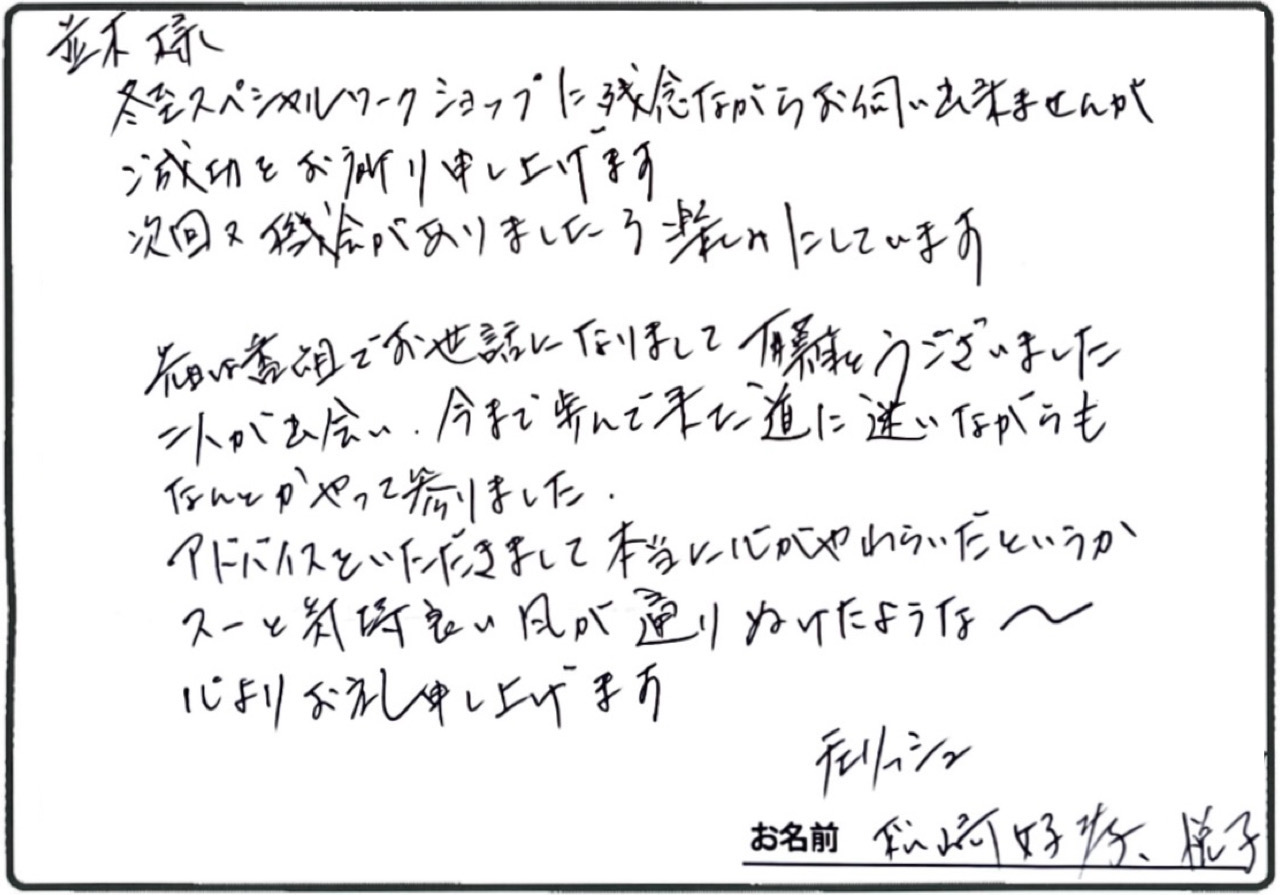 並木様
冬至スペシャルワークショップに残念ながらお伺い出来ませんが
ご成功をお祈り申し上げます
次回又機会がありましたら楽しみにしています
先日は番組でお世話になりまして有難とうございました
二人が出会い、今まで歩んで来た道に迷いながらも
なんとかやって参りました.
アドバイスをいただきまして本当に心がやわらいだというか
スーと気持良い風が通りぬけたような〜
心よりお礼申し上げます
リッシュ
お名前 松崎好孝、悦子